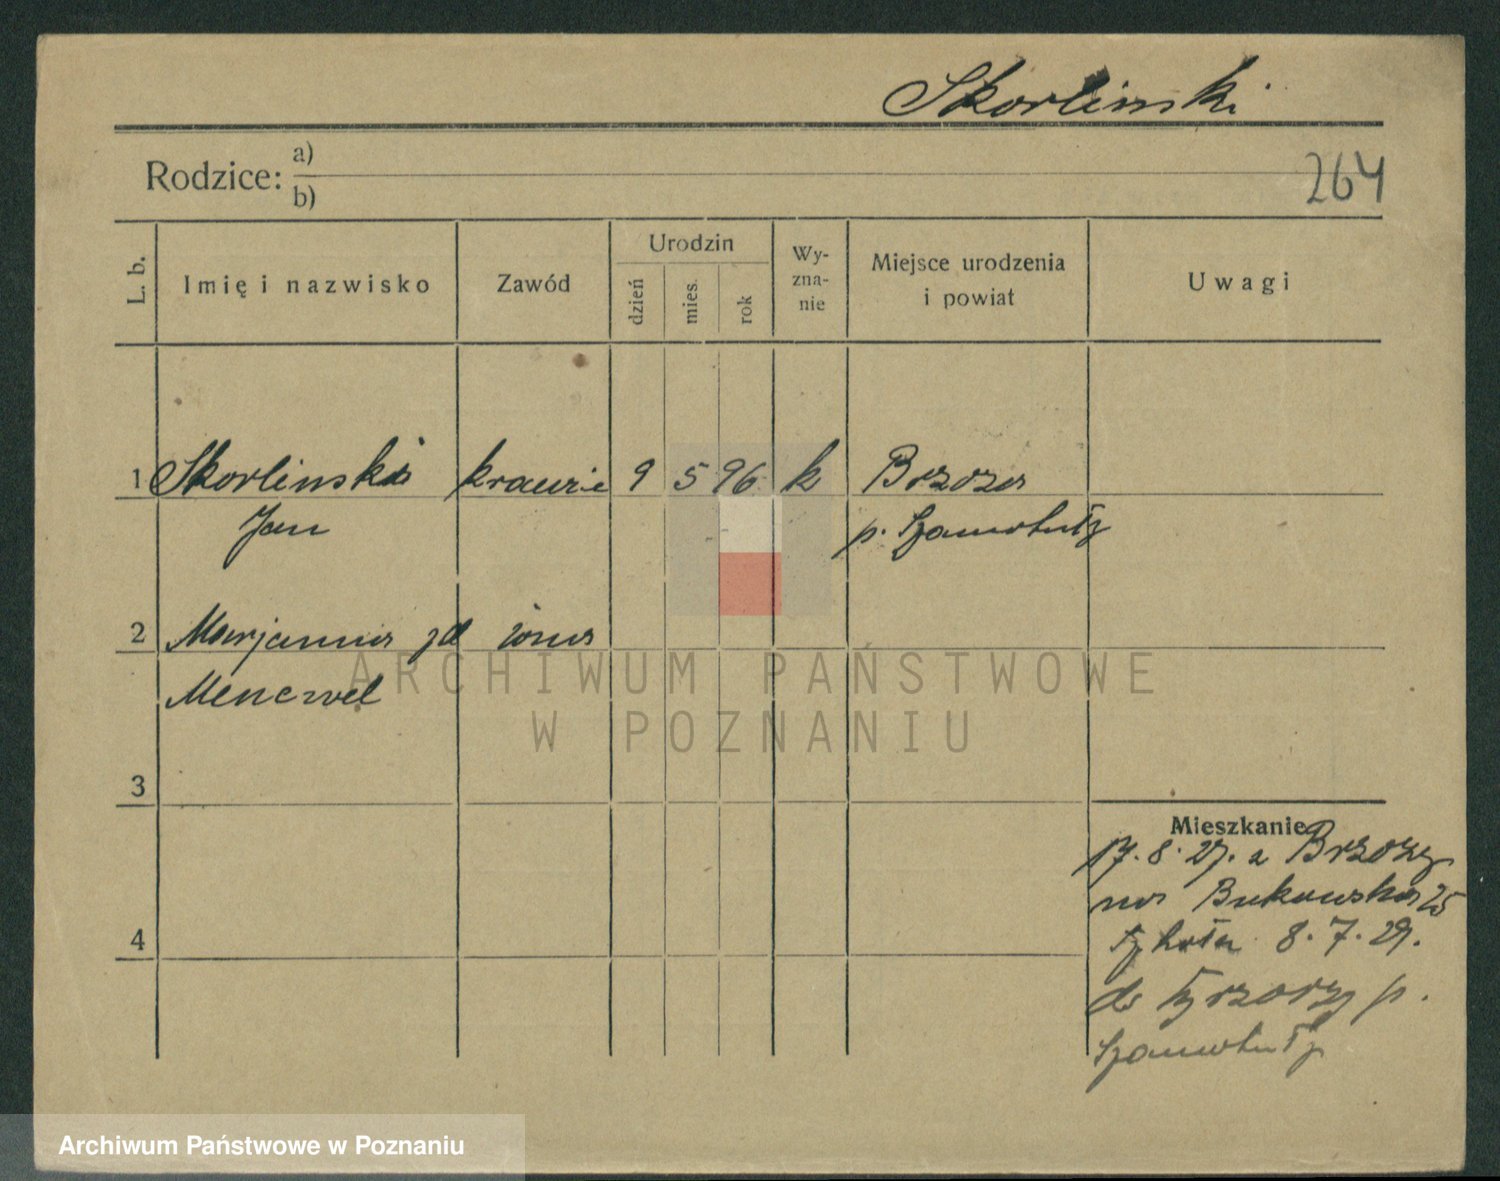 Skorlinski
Rodzice: a)
b)
264
L. b.
Imię i nazwisko
Zawód
Urodzin
dzień
mies.
rok
Wy-
zna-
nie
Miejsce urodzenia
i powiat
Uwagi
1 Skorlinski krawiec 9 5 96 k Brzoza
Jan p. Szamotuły
2 Marjanna zd żona
Menczel
3
4
Mieszkanie
17. 8. 27. z Brzozy
na Bukowska 25
8. 7. 29.
do p.
Szamotuły
ARCHIWUM PAŃSTWOWE
W POZNANIU
Archiwum Państwowe w Poznaniu